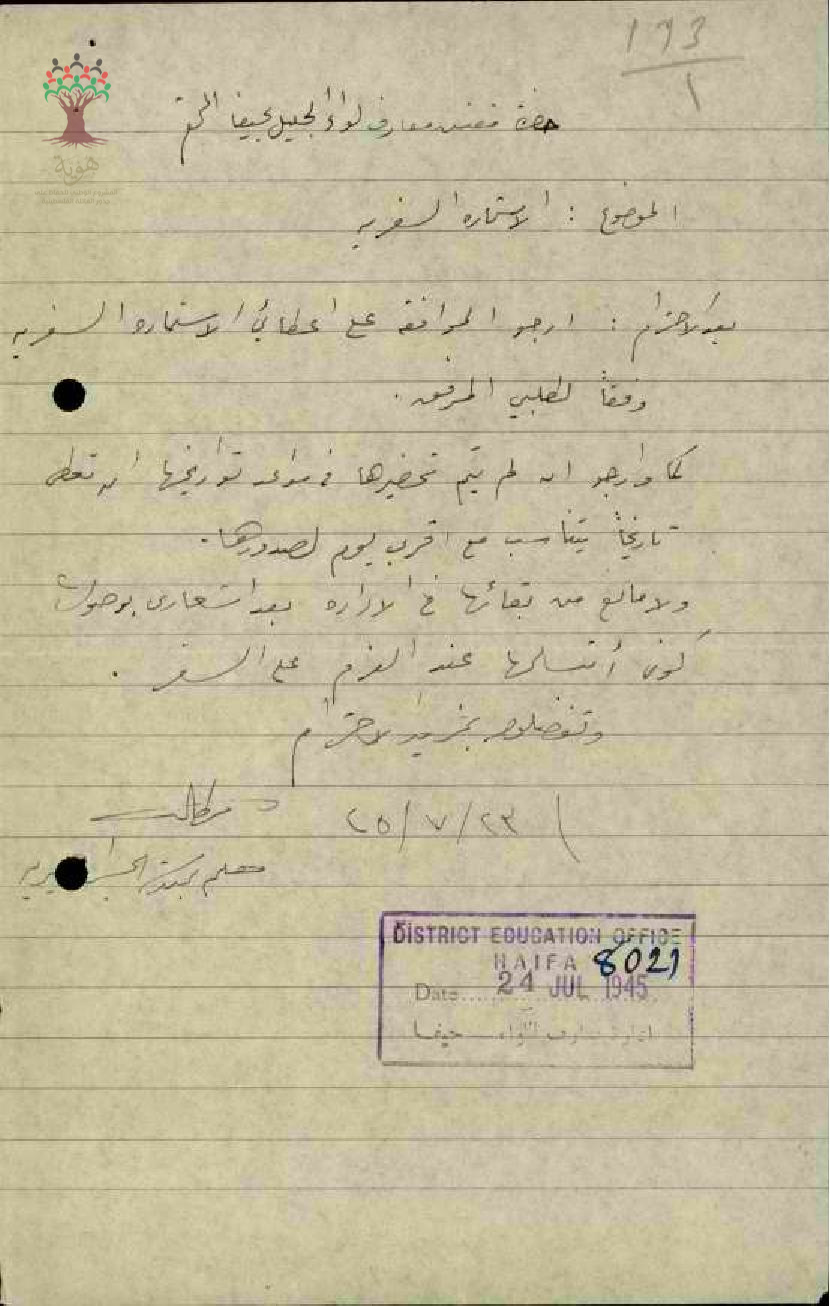 193
١
حضرة مفتش معارف لواء الجليل بحيفا المحترم
الموضوع : الاستمارة السفريه
بعد الاحترام : ارجو الموافقه على اعطائي الاستماره السفريه
وفقاً لطلبي المرفق .
كما وارجو ان لم يتم تحضيرها في مواعد تواريخها ان تعطى
تاريخاً يتناسب مع اقرب يوم لصدورها .
ولا مانع من بقائها في الاداره بعد اشعاري بوصولها
كوني أتسلمها عند العزم على السفر .
وتفضلوا بمزيد الاحترام
٢٥/٧/٢٣
معلم
هوية
DISTRICT EDUCATION OFFICE
HAIFA 8021
Date 24 JUL 1945
ادارة معارف اللواء حيفا